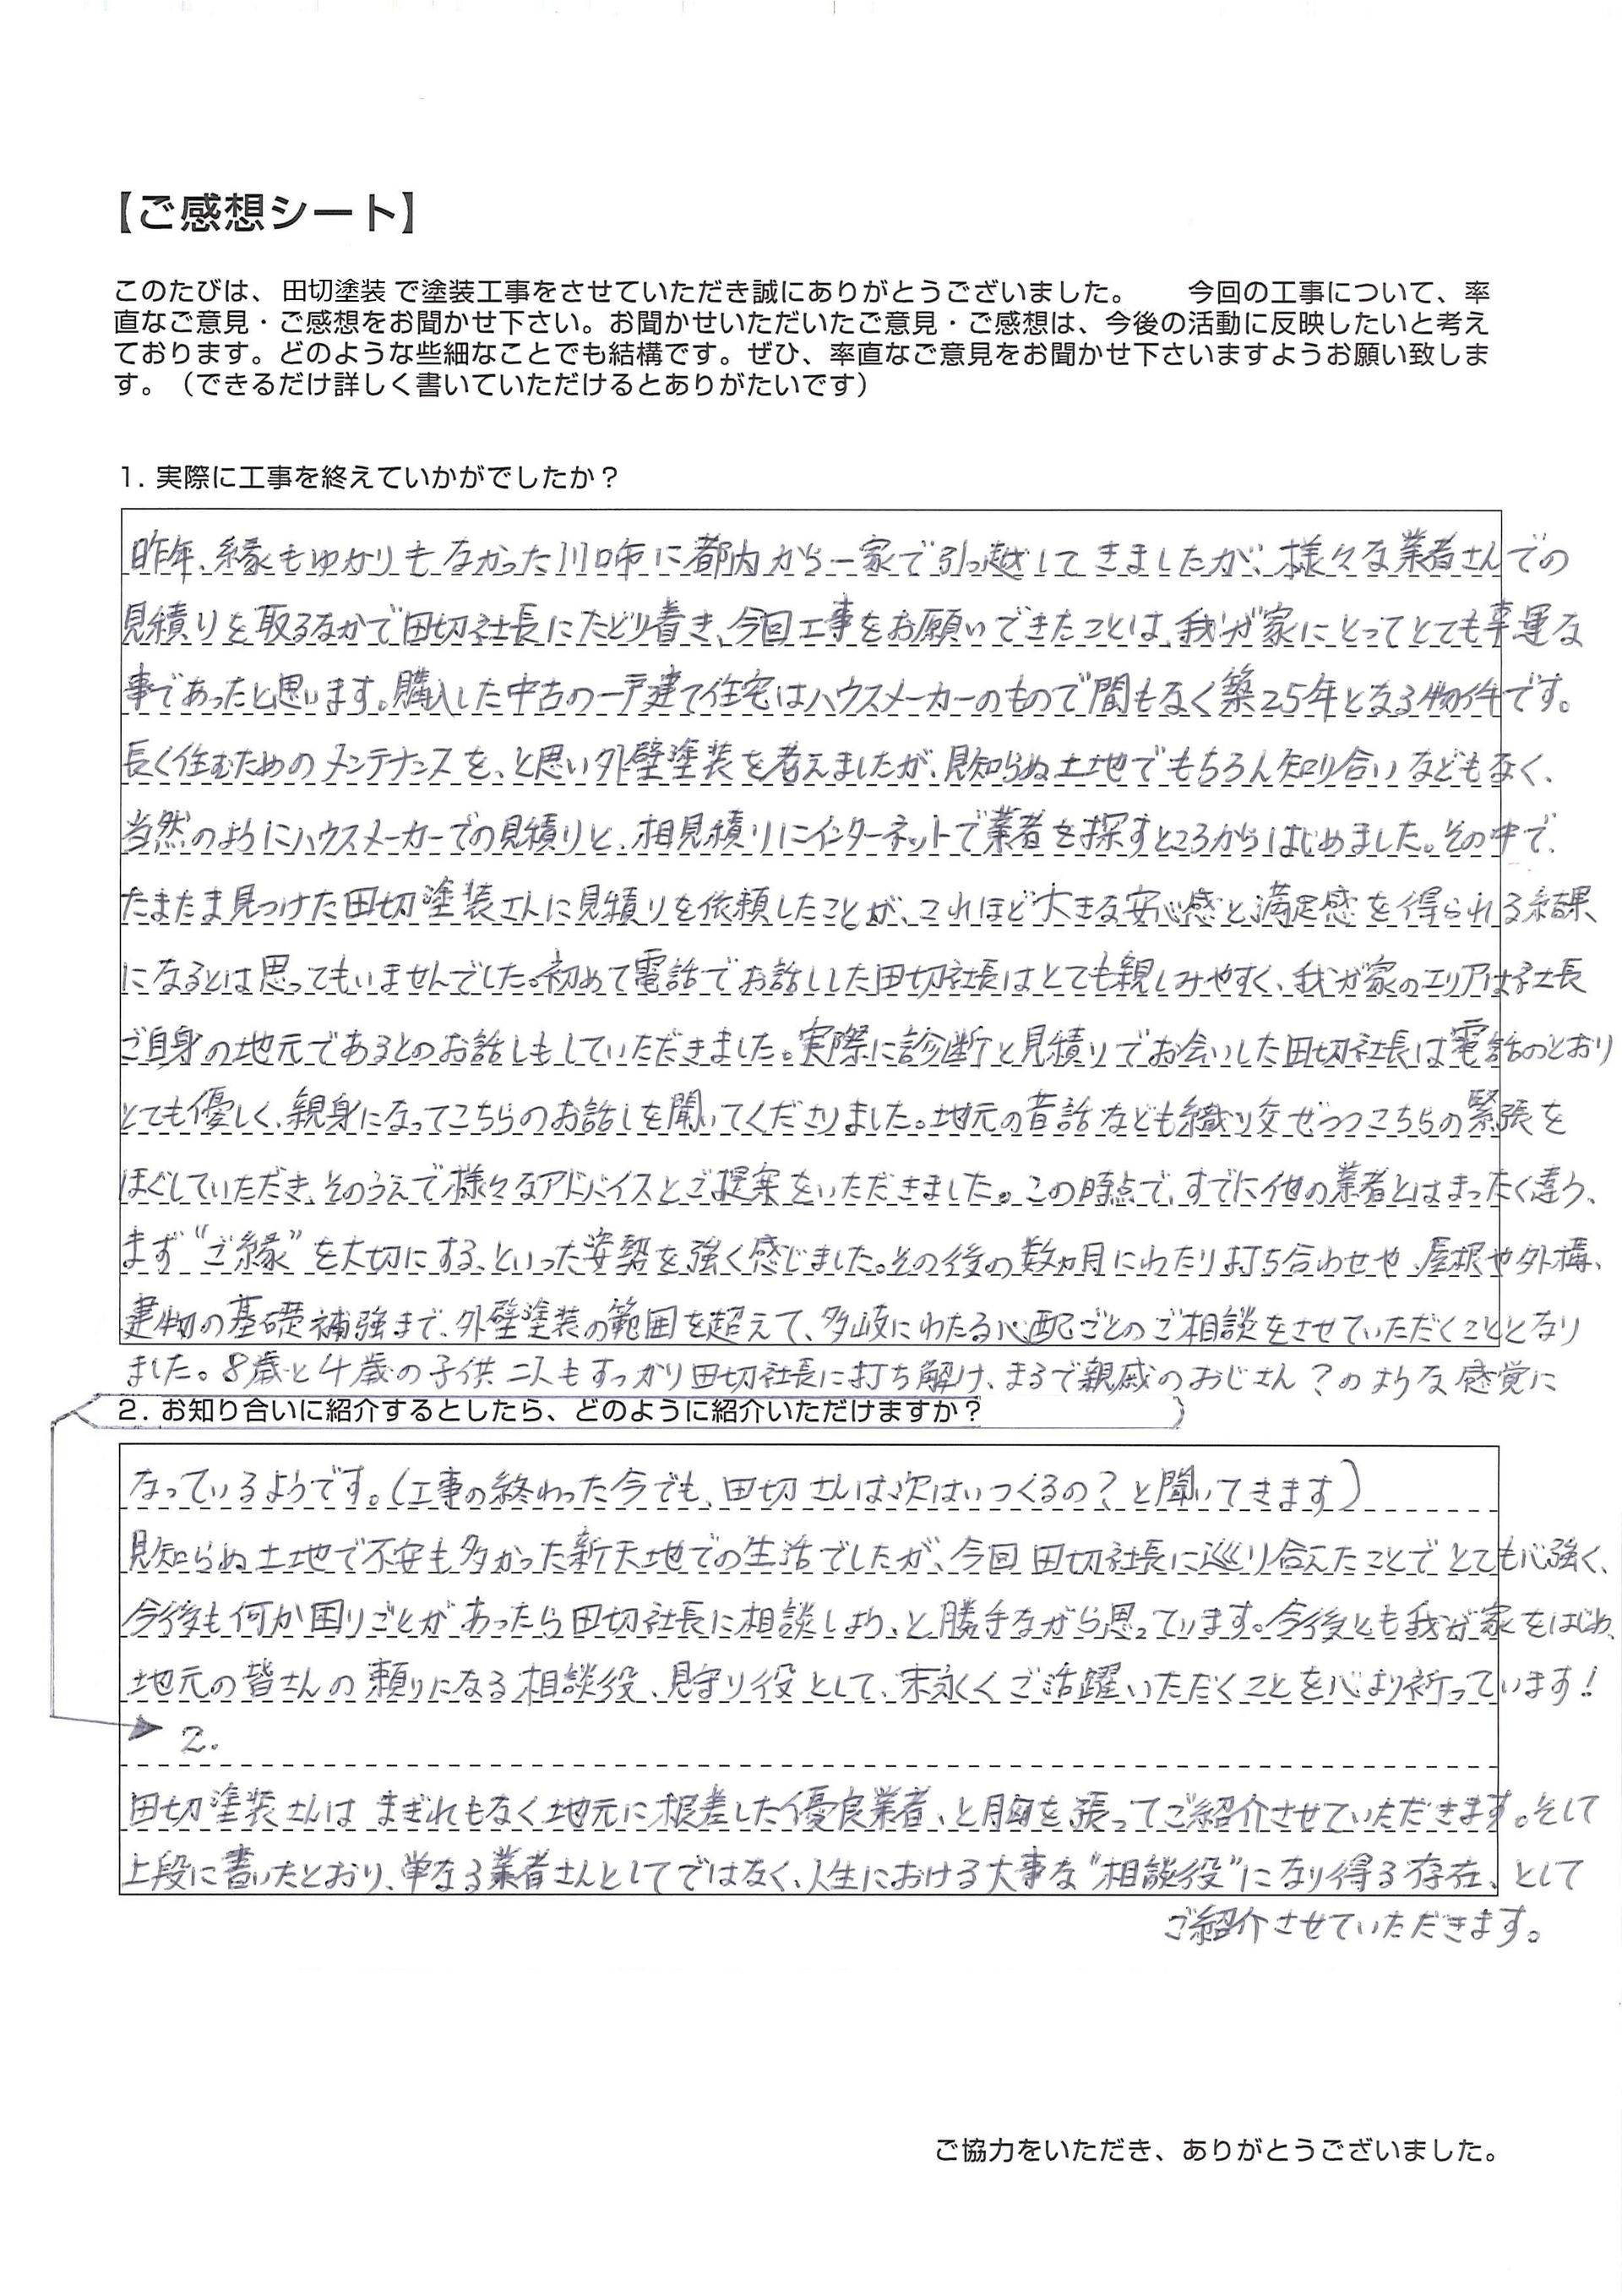 【ご感想シート】
このたびは、田切塗装 で塗装工事をさせていただき誠にありがとうございました。　　今回の工事について、率
直なご意見・ご感想をお聞かせ下さい。お聞かせいただいたご意見・ご感想は、今後の活動に反映したいと考え
ております。どのような些細なことでも結構です。ぜひ、率直なご意見をお聞かせ下さいますようお願い致しま
す。（できるだけ詳しく書いていただけるとありがたいです）
1. 実際に工事を終えていかがでしたか？
昨年、縁もゆかりもなかった川口市に都内から一家で引っ越してきましたが、様々な業者さんでの
見積りを取るなかで田切社長にたどり着き、今回工事をお願いできたことは、我が家にとってとても幸運な
事であったと思います。購入した中古の一戸建て住宅はハウスメーカーのもので間もなく築25年となる物件です。
長く住むためのメンテナンスを、と思い外壁塗装を考えましたが、見知らぬ土地でもちろん知り合いなどもなく、
当然のようにハウスメーカーでの見積りと、相見積りにインターネットで業者を探すところからはじめました。その中で、
たまたま見つけた田切塗装さんに見積りを依頼したことが、これほど大きな安心感と満足感を得られる結果
になるとは思ってもいませんでした。初めて電話でお話しした田切社長はとても親しみやすく、我が家のエリアは社長
ご自身の地元であるとのお話しもしていただきました。実際に診断と見積りでお会いした田切社長は電話のとおり
とても優しく、親身になってこちらのお話しを聞いてくださりました。地元の昔話なども織り交ぜつつこちらの緊張を
ほぐしていただき、そのうえで様々なアドバイスとご提案をいただきました。この時点で、すでに他の業者とはまったく違う、
まず"ご縁"を大切にする、といった姿勢を強く感じました。その後の数ヵ月にわたり打ち合わせや、屋根や外構、
建物の基礎補強まで、外壁塗装の範囲を超えて、多岐にわたる心配ごとのご相談をさせていただくこととなり
ました。8歳と4歳の子供二人もすっかり田切社長に打ち解け、まるで親戚のおじさん？のような感覚に
2. お知り合いに紹介するとしたら、どのように紹介いただけますか？
なっているようです。(工事の終わった今でも、田切さんは次はいつくるの？と聞いてきます)
見知らぬ土地で不安も多かった新天地での生活でしたが、今回田切社長に巡り合えたことでとても心強く、
今後も何か困りごとがあったら田切社長に相談しよう、と勝手ながら思っています。今後とも我が家をはじめ、
地元の皆さんの頼りになる相談役、見守り役として、末永くご活躍いただくことを心より祈っています！
2.
田切塗装さんはまぎれもなく地元に根差した優良業者、と胸を張ってご紹介させていただきます。そして
上段に書いたとおり、単なる業者さんとしてではなく、人生における大事な"相談役"になり得る存在、として
ご紹介させていただきます。
ご協力をいただき、ありがとうございました。